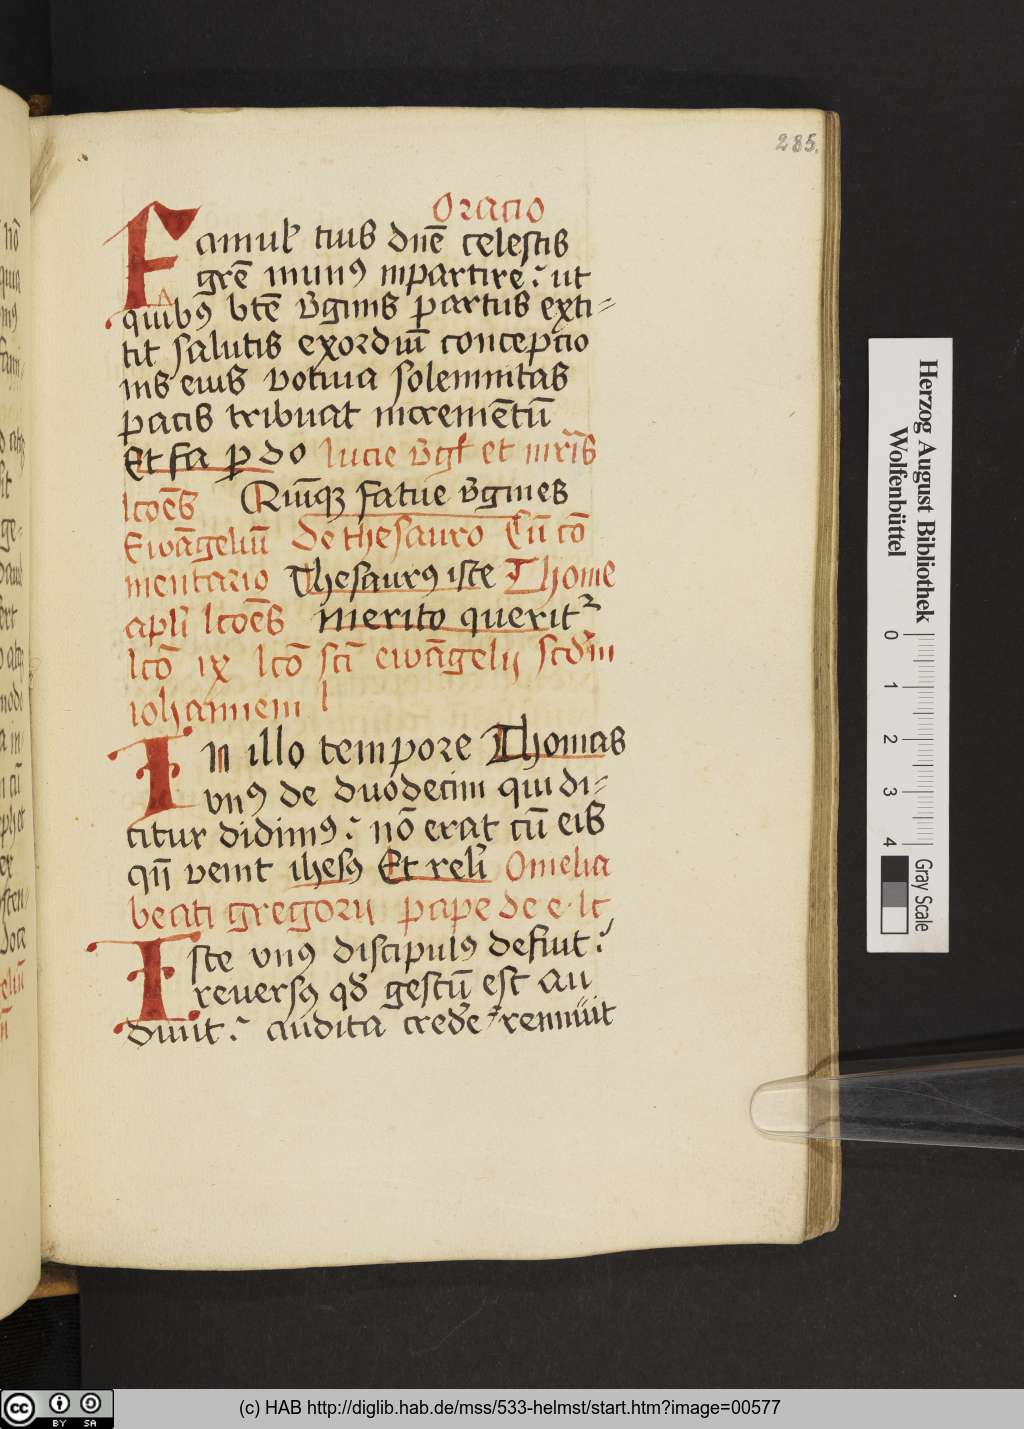 285.
Oracio
Famulꝭ tuis dn̄e celestis
gr̄e munꝰ inpartire: ut
quibꝰ bt̄e v̄ginis partus exti-
tit salutis exordiū concepcio
nis eius votiua solemnitas
pacis tribuat incremētū
Et fa p do lucie v̄gꝭ et mr̄is
lcōes Quīqꝫ fatue v̄gines
Ewāgeliū de thesauro Cū cō
mentario Thesaurꝰ iste Thome
apl̄i lcōes merito querit᷑
lcō ix lcō sc̄i ewāgelij scd̄m
iohannem
In illo tempore Thomas
vnꝰ de duodecim qui di-
citur didimꝰ: nō erat cū eis
qn̄ venit ihesꝰ Et reli Omelia
beati gregorii pape de e· lc
Iste vnꝰ discipulꝰ defuit:
reuersꝰ qd̄ gestū est au
diuit: audita cred̄e rennuit
Herzog August Bibliothek
Wolfenbüttel
0 1 2 3 4
Gray Scale
cc BY SA
(c) HAB http://diglib.hab.de/mss/533-helmst/start.htm?image=00577